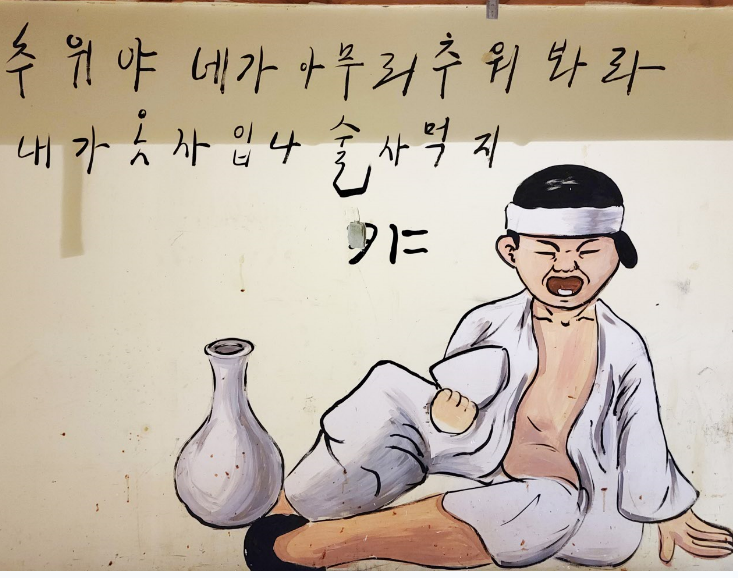 추위야 네가 아무리 추워 봐라
내가 옷 사 입나 술 사먹지
캬